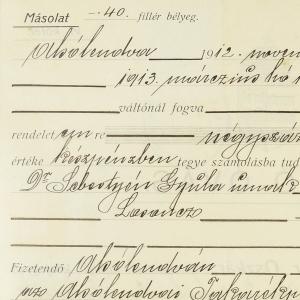 Másolat —. 40. fillér bélyeg.
Alsólendva 1912. novem
1913. márczius hó
váltónál fogva
rendelet en re négyszáz
értéke készpénzben tegye számolásba tud
Dr Sebestyén Gyula úrnak
Losoncz
Fizetendő Alsólendván
az Alsólendvai Takarék